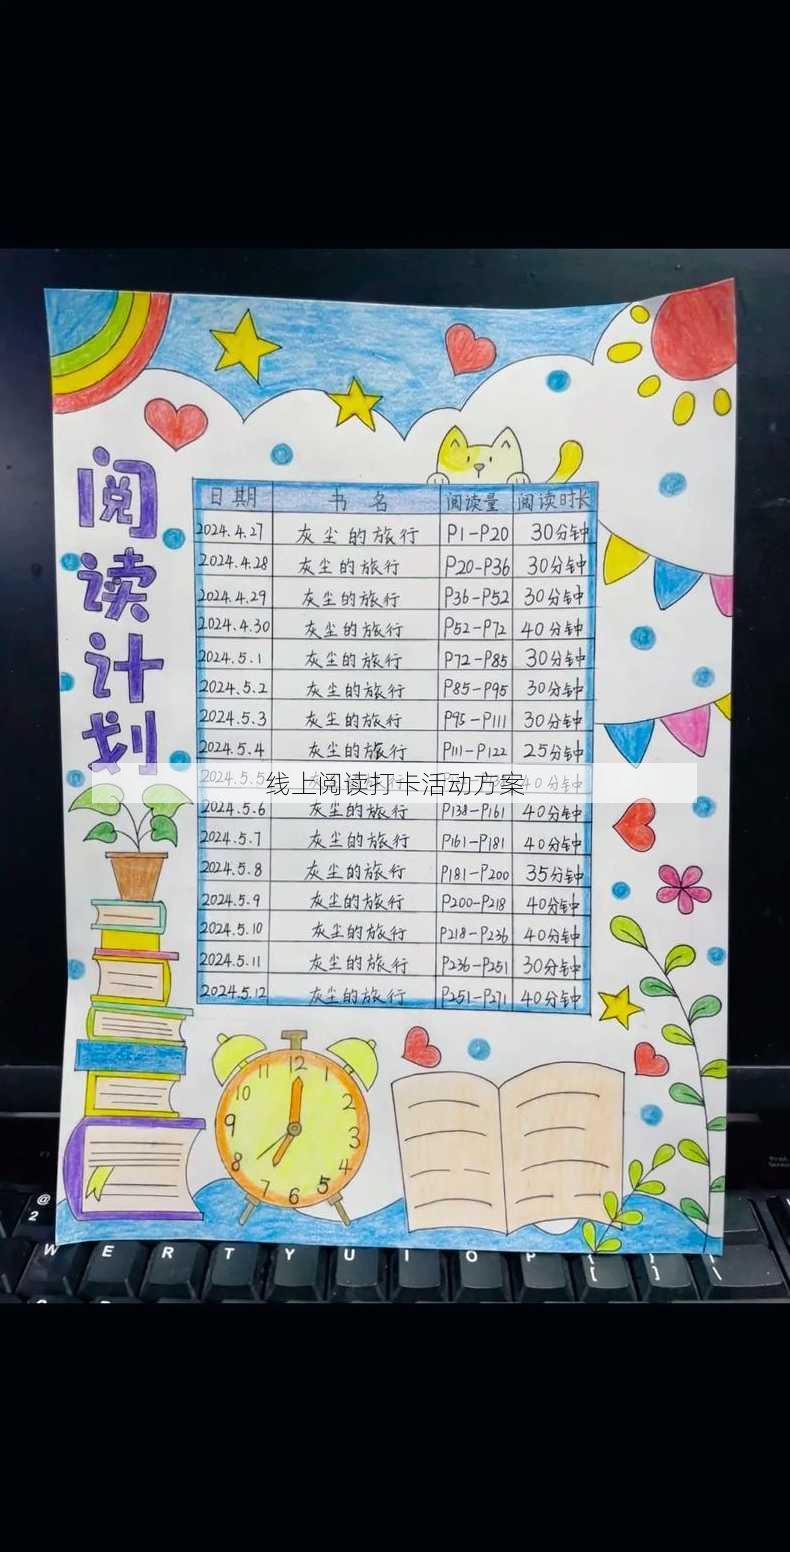 阅读计划
日期 书名 阅读量 阅读时长
2024.4.27 灰尘的旅行 P1-P20 30分钟
2024.4.28 灰尘的旅行 P20-P36 30分钟
2024.4.29 灰尘的旅行 P36-P52 30分钟
2024.4.30 灰尘的旅行 P52-P72 40分钟
2024.5.1 灰尘的旅行 P72-P85 30分钟
2024.5.2 灰尘的旅行 P85-P95 30分钟
2024.5.3 灰尘的旅行 P95-P111 30分钟
2024.5.4 灰尘的旅行 P111-P122 25分钟
2024.5.5 40分钟
线上阅读打卡活动方案
2024.5.6 灰尘的旅行 P138-P161 40分钟
2024.5.7 灰尘的旅行 P161-P181 40分钟
2024.5.8 灰尘的旅行 P181-P200 35分钟
2024.5.9 灰尘的旅行 P200-P218 40分钟
2024.5.10 灰尘的旅行 P218-P236 40分钟
2024.5.11 灰尘的旅行 P236-P251 30分钟
2024.5.12 灰尘的旅行 P251-P271 40分钟
11 12 1
10 2
9 3
8 4
7 6 5
@
2
W E R T Y U I O P { }
[ ] \